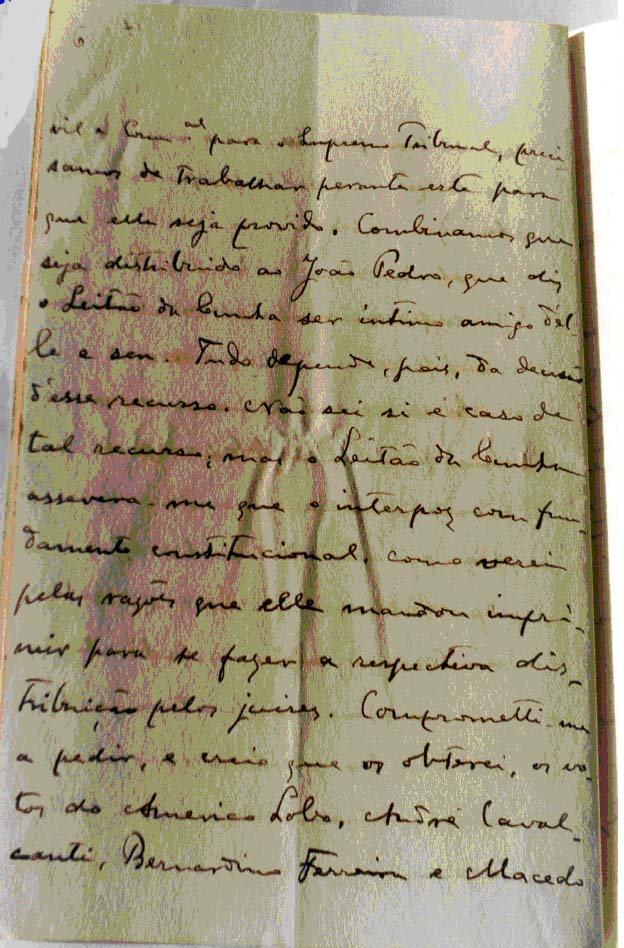 vil e Com.al para o Supremo Tribunal, preci-
samos de trabalhar perante este para
que elle seja provido. Combinamos que
seja distribuido ao João Pedro, que diz
o Leitão da Cunha ser intimo amigo del-
le e seu. Tudo depende, pois, da decisão
d'esse recurso. Não sei si é caso de
tal recurso; mas o Leitão da Cunha
assevera-me que o interpoz com fun-
damento constitucional, como verei
pelas razões que elle mandou impri-
mir para se fazer a respectiva dis-
tribuição pelos juizes. Comprometti-me
a pedir, e creio que os obterei, os vo-
tos do Americo Lobo, André Caval-
canti, Bernardino Ferreira e Macedo